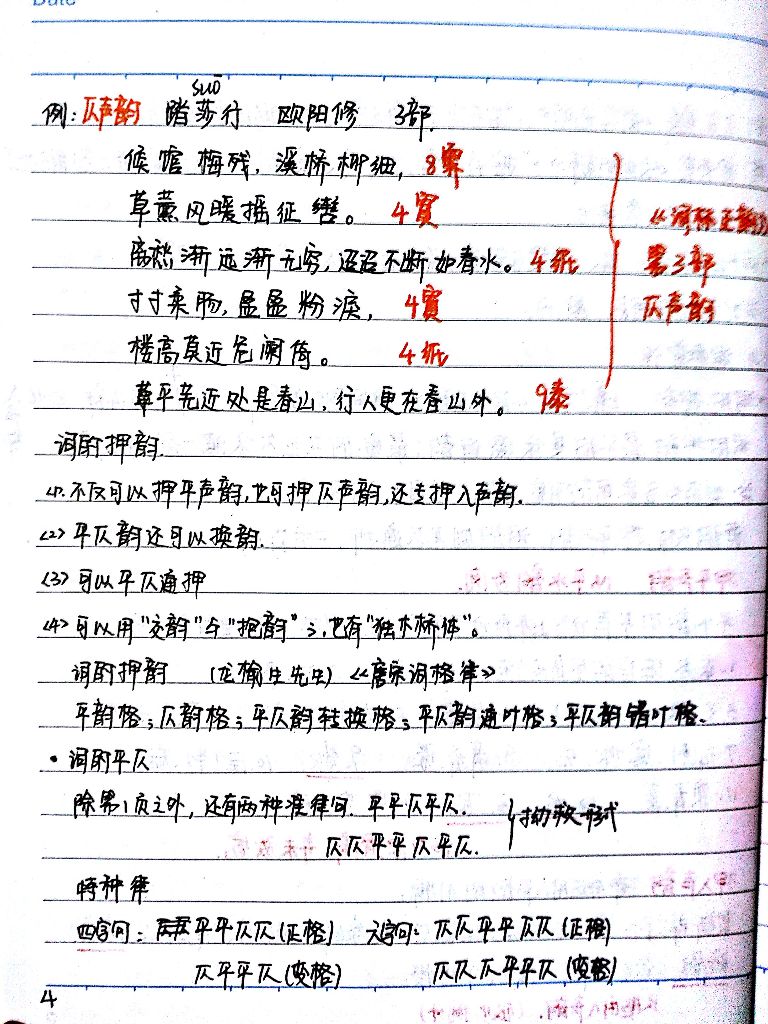 Date
suō
例：仄声韵 踏莎行 欧阳修 3部.
候馆梅残，溪桥柳细，8霁
草薰风暖摇征辔。4寘
离愁渐远渐无穷，迢迢不断如春水。4纸
寸寸柔肠，盈盈粉泪，4寘
楼高莫近危阑倚。4纸
草平芜近处是春山，行人更在春山外。9泰
《词林正韵》
第3部
仄声韵
词的押韵.
<1>.不仅可以押平声韵，也可押仄声韵，还专押入声韵.
<2>平仄韵还可以换韵.
<3>可以平仄通押
<4>可以用"交韵"与"抱韵"；也有"独木桥体"。
词的押韵 (龙榆生先生)《唐宋词格律》
平韵格；仄韵格；平仄韵转换格；平仄韵通叶格；平仄韵错叶格.
•词的平仄
除第1页之外，还有两种准律句. 平平仄平仄.
仄仄平平仄平仄.
拗救形式
特种律
四字句：平平仄仄(正格) 六字句：仄仄平平仄仄(正格)
仄平平仄(变格) 仄仄仄平平仄(变格)
4